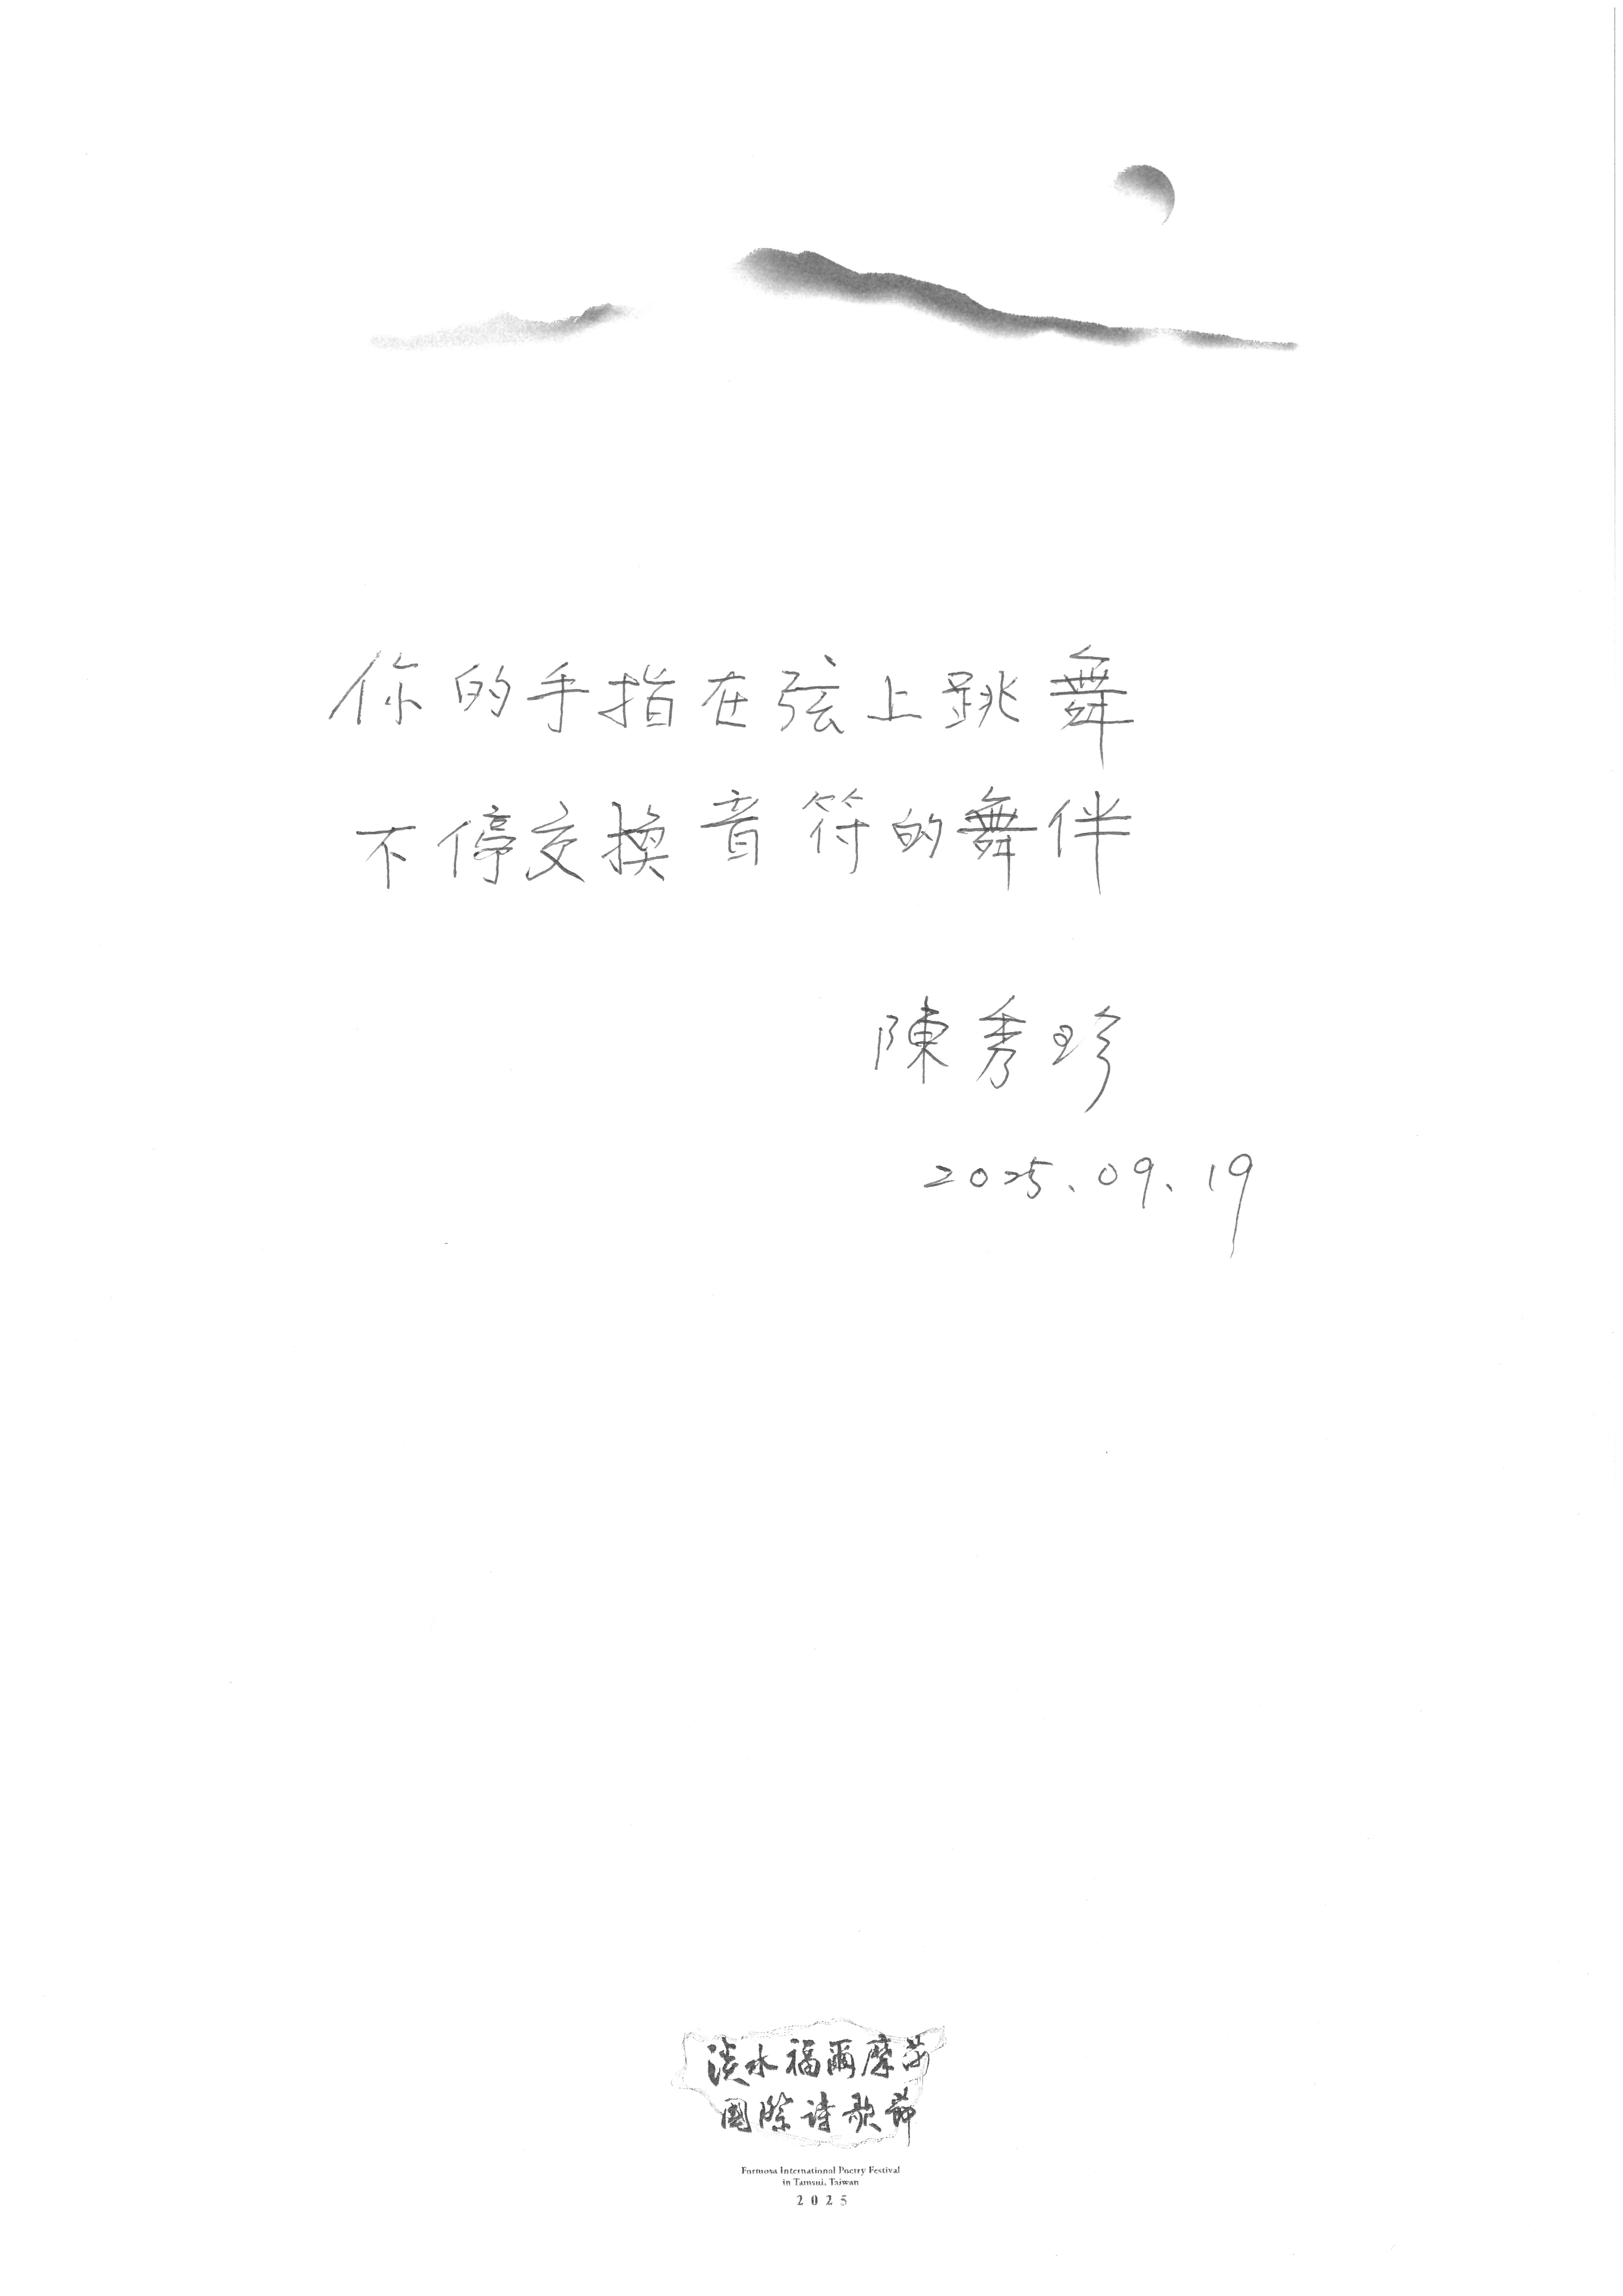 你的手指在弦上跳舞
不停交換音符的舞伴
陳秀珍
2025.09.19
淡水福爾摩莎
國際詩歌節
Formosa International Poetry Festival
in Tamsui, Taiwan
2025